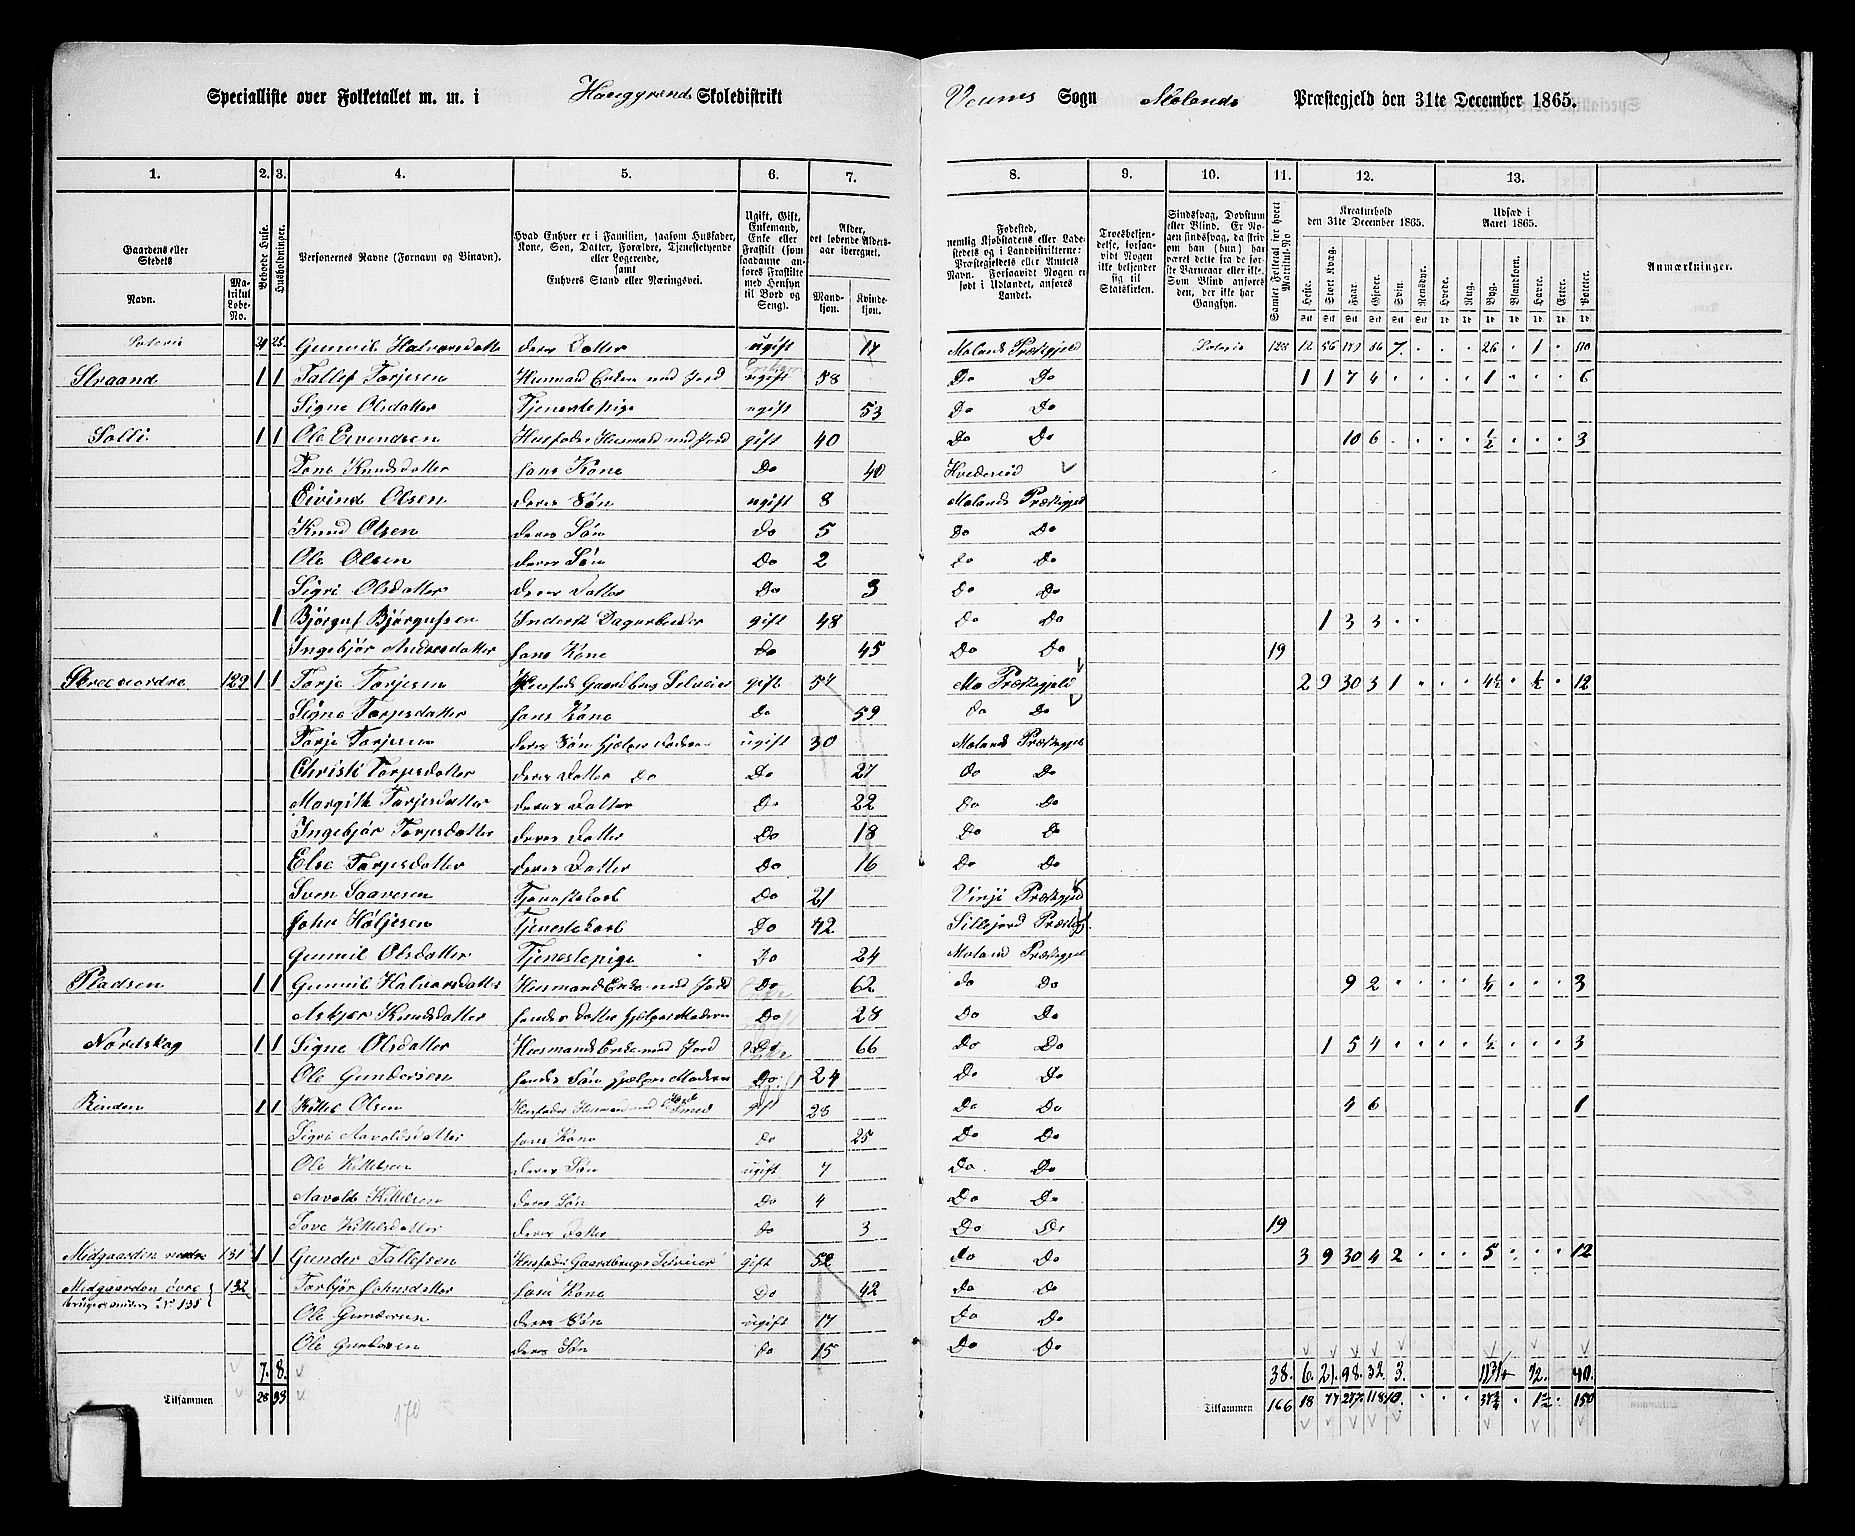 Specialliste over Folketallet m. m. i Hauggrends Skoledistrikt Veums Sogn Molands Præstegjeld den 31te December 1865.
1. 2. 3. 4. 5. 6. 7. 8. 9. 10. 11. 12. 13.
Gaardens eller Stedets Navn. Matrikul Løbe-No. Beboede Huse. Husholdninger. Personernes Navne (Fornavn og Tilnavn). Hvad Enhver er i Familien, saasom Husfader, Kone, Søn, Datter, Forældre, Tjenestetyende eller Logerende, samt Enhvers Stand eller Næringsvei. Ugift, Gift, Enkemand, Enke eller Fraskilt (som saadanne anføres de Fraskilte med Hensyn til Bord og Seng). Alder, det løbende Aldersaar iberegnet. Mandkjøn. Kvindekjøn.
Fødested, nemlig Kjøbstadens eller Ladestedets eller i Landdistrikterne: Præstegjeldets eller Amtets Navn. Forsaavidt Nogen er født i Udlandet, anføres Landet. Troesbekjendelse, forsaavidt Nogen ikke bekjender sig til Statskirken. Samlet Folketal for hvert Matrikul-No Kreaturhold den 31te December 1865. Heste. Stort Kvæg. Faar. Gjeder. Svin. Rensdyr. Udsæd i Aaret 1865. Hvede. Rug. Byg. Blandkorn. Havre. Erter. Poteter. Anmærkninger.
Gunvil Halvorsdatter deres Datter ugift 17 Molands Præstegjeld 128 12 56 7 26 1 110
Straand 1 1 Tallef Torjesen Husmand Enkem. med Jord ugift 58 Do Do 1 1 7 4 1 6
Signe Olsdatter Tjenestepige ugift 53 Do Do
Solli 1 1 Ole Eivendsen Husfader Husmand med Jord gift 40 Do Do 10 6 ½ 3
Tone Knudsdatter hans Kone Do 40 Hvideseid
Eivind Olsen deres Søn ugift 8 Molands Præstegjeld
Knud Olsen deres Søn Do 5 Do Do
Ole Olsen deres Søn Do 2 Do Do
Sigri Olsdatter deres Datter Do 3 Do Do
1 Bjørguf Bjørgufsen Inderst Dagarbeider gift 48 Do Do 1 3 3
Ingebjør Andresdatter hans Kone Do 45 Do Do 19
nordre 129 1 1 Torje Torjesen Husfader Gaardbrg Selveier gift 54 Mo Præstegjeld 2 9 30 3 1 4½ ½ 12
Signe Torjesdatter hans Kone Do 59 Do Do
Torje Torjesen deres Søn hjelper Faderen ugift 30 Molands Præstegjeld
Christi Torjesdatter deres Datter Do Do 27 Do Do
Margith Torjesdatter deres Datter Do 22 Do Do
Ingebjør Torjesdatter deres Datter Do 18 Do Do
Else Torjesdatter deres Datter Do 16 Do Do
Sven Saavesen Tjenestekarl Do 21 Vinje Præstegjeld
John Høljesen Tjenestekarl Do 42 Sillejord Præstegj.
Gunnil Olsdatter Tjenestepige Do 24 Moland Præstegjeld
Pladsen 1 1 Gunvil Halvorsdatter Husmands Enke med Jord Do 62 Do Do 9 2 ¼ 3
Askjer Knudsdatter hendes Datter hjelper Moderen Do 28 Do Do
Nordskog 1 1 Signe Olsdatter Husmands Enke med Jord Do 66 Do Do 1 5 4 ½ 3
Ole Gundersen hendes Søn hjelper Moderen Do 24 Do Do
Rinden 1 1 Kittel Olsen Husfader Husmand med Jord Smed gift 28 Do Do 4 6 1
Sigri Aavoldsdatter hans Kone Do 25 Do Do
Ole Kittelsen deres Søn ugift 7 Do Do
Aavold Kittelsen deres Søn Do 4 Do Do
Tove Kittelsdatter deres Datter Do 3 Do Do 19
Midgaarden nordre 131 1 1 Gunder Tallefsen Husfader Gaardbruger Selveier gift 52 Do Do 3 9 30 4 2 5 12
Midgaarden övre 132 Torbjør Johnsdatter hans Kone Do 42 Do Do
bruges under No 131 Ole Gundersen deres Søn ugift 17 Do Do
Ole Gundersen deres Søn Do 15 Do Do
7. 8. 38. 6. 21. 98. 32. 3. 40.
Tilsammen 28 33 Tilsammen 166 18 77 257 118 10 150
170